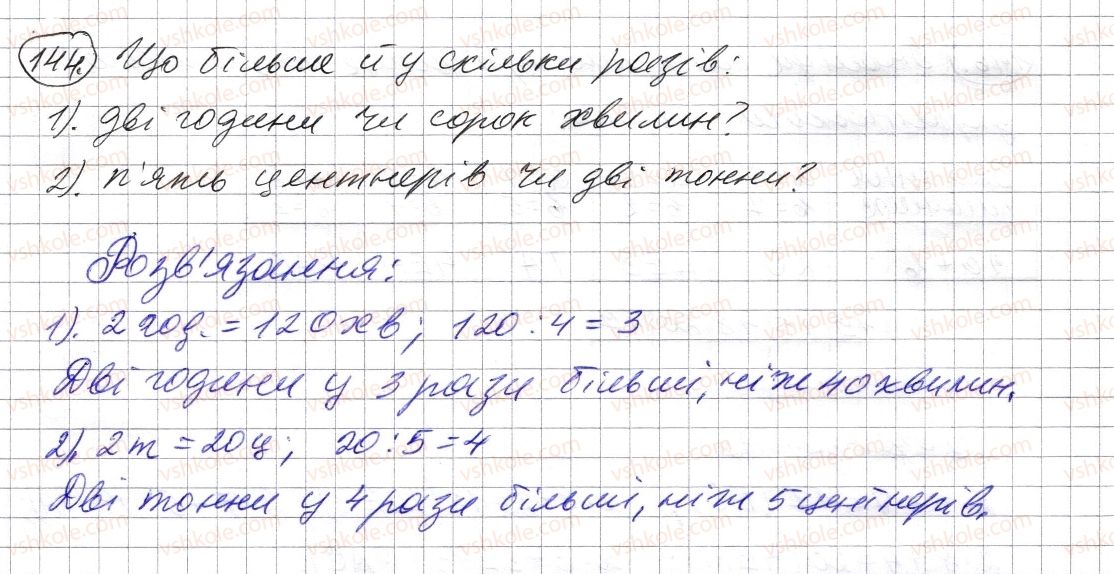 144. Що більше й у скільки разів:
1). дві години чи сорок хвилин?
2). п'ять центнерів чи дві тонни?
Розв'язання:
1). 2 год. = 120 хв; 120 : 4 = 3
Дві години у 3 рази більші, ніж 40 хвилин.
2). 2 т = 20 ц; 20 : 5 = 4
Дві тонни у 4 рази більші, ніж 5 центнерів.